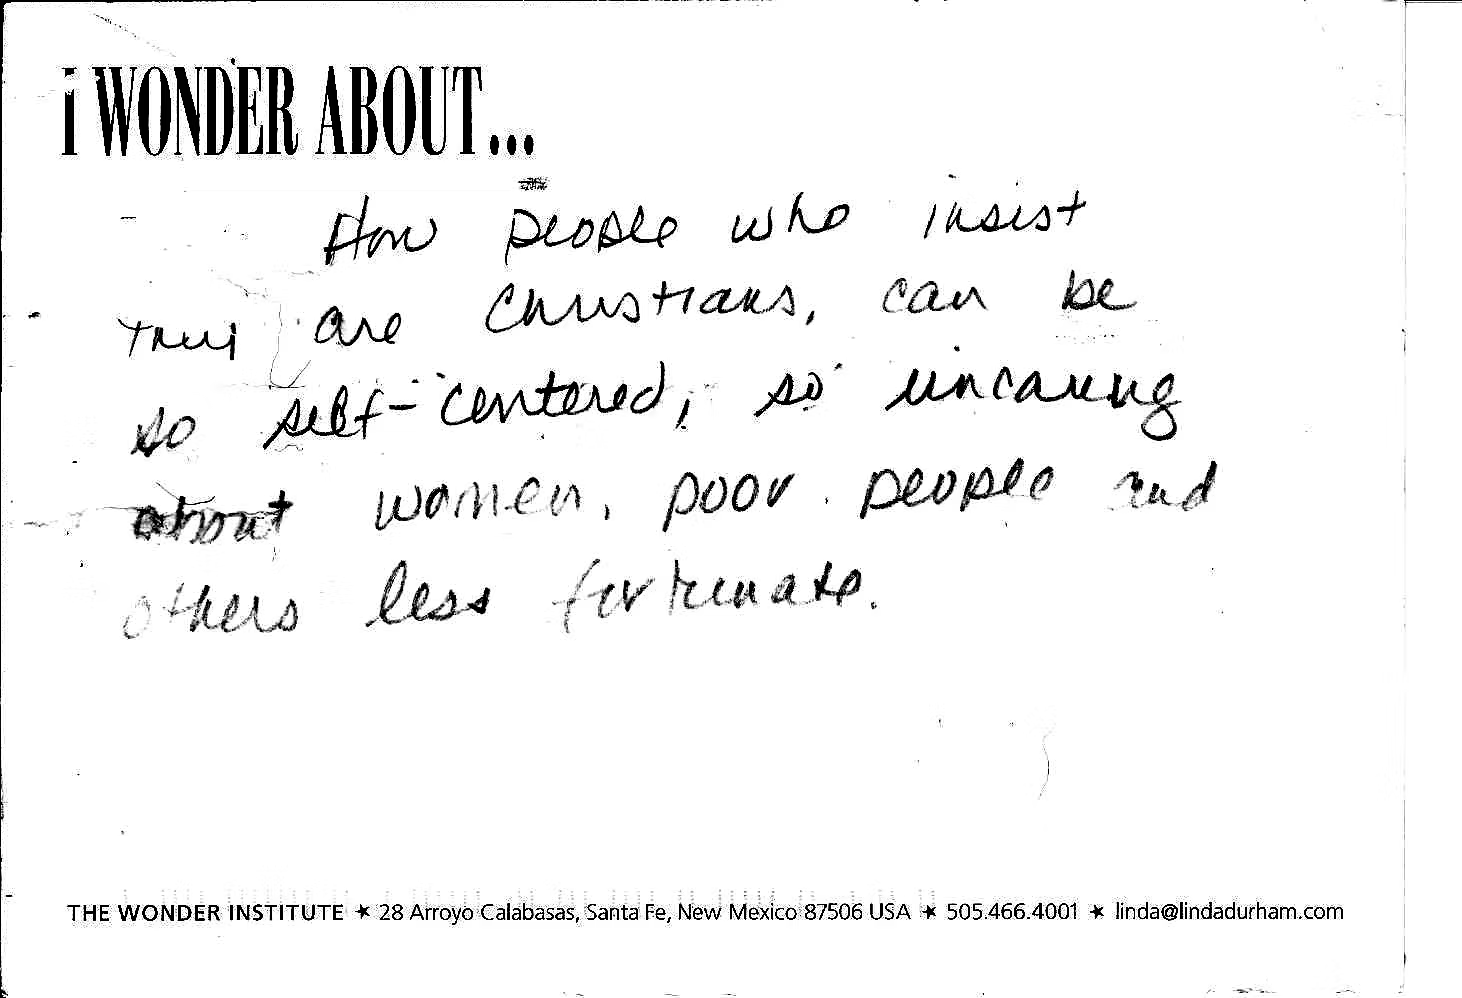 i WONDER ABOUT...
How people who insist
they are Christians, can be
so self-centered, so uncaring
about women, poor people and
others less fortunate.
THE WONDER INSTITUTE ★ 28 Arroyo Calabasas, Santa Fe, New Mexico 87506 USA ★ 505.466.4001 ★ linda@lindadurham.com